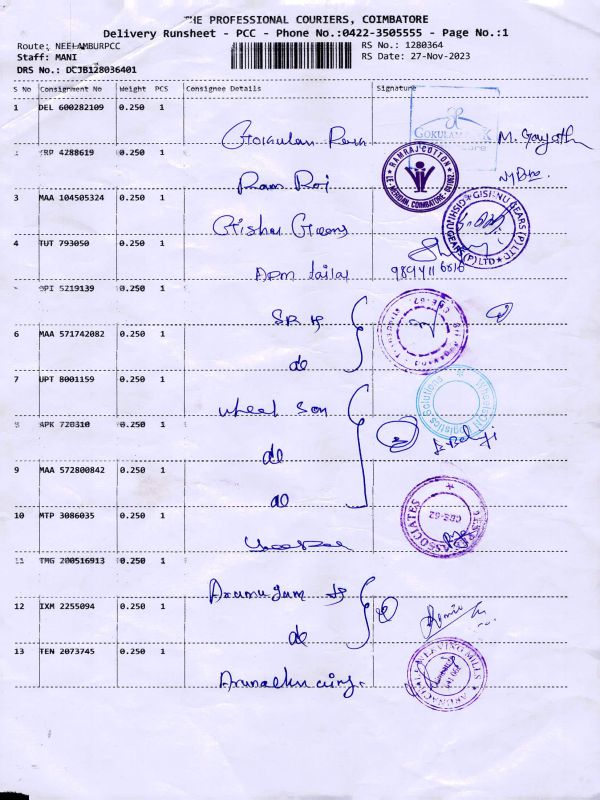 THE PROFESSIONAL COURIERS, COIMBATORE
Delivery Runsheet - PCC - Phone No.:0422-3505555 - Page No.:1
Route: NEELAMBURPCC RS No.: 1280364
Staff: MANI RS Date: 27-Nov-2023
DRS No.: DCJB128036401
S No Consignment No Weight PCS Consignee Details Signature
1 DEL 600282109 0.250 1
Gokulam Park
GOKULAM PARK
RP 4288619 0.250 1
Ram Raj
RAMRAJ COTTON
LE-MERIDIAN, COIMBATORE
3 MAA 104505324 0.250 1
Gishnu Gears
GISHNU GEARS (P) LTD
4 TUT 793050 0.250 1
APM
OPI 5219139 0.250 1
SR
CBE-62
6 MAA 571742082 0.250 1
do
7 UPT 8001159 0.250 1
wheel Son
Logistics Solutions
APK 720310 0.250 1
do
9 MAA 572800842 0.250 1
do
10 MTP 3086035 0.250 1
ASSOCIATES
CBE-62
11 TMG 200516913 0.250 1
Arumugam
12 IXM 2255094 0.250 1
do
13 TEN 2073745 0.250 1
WEAVING MILLS